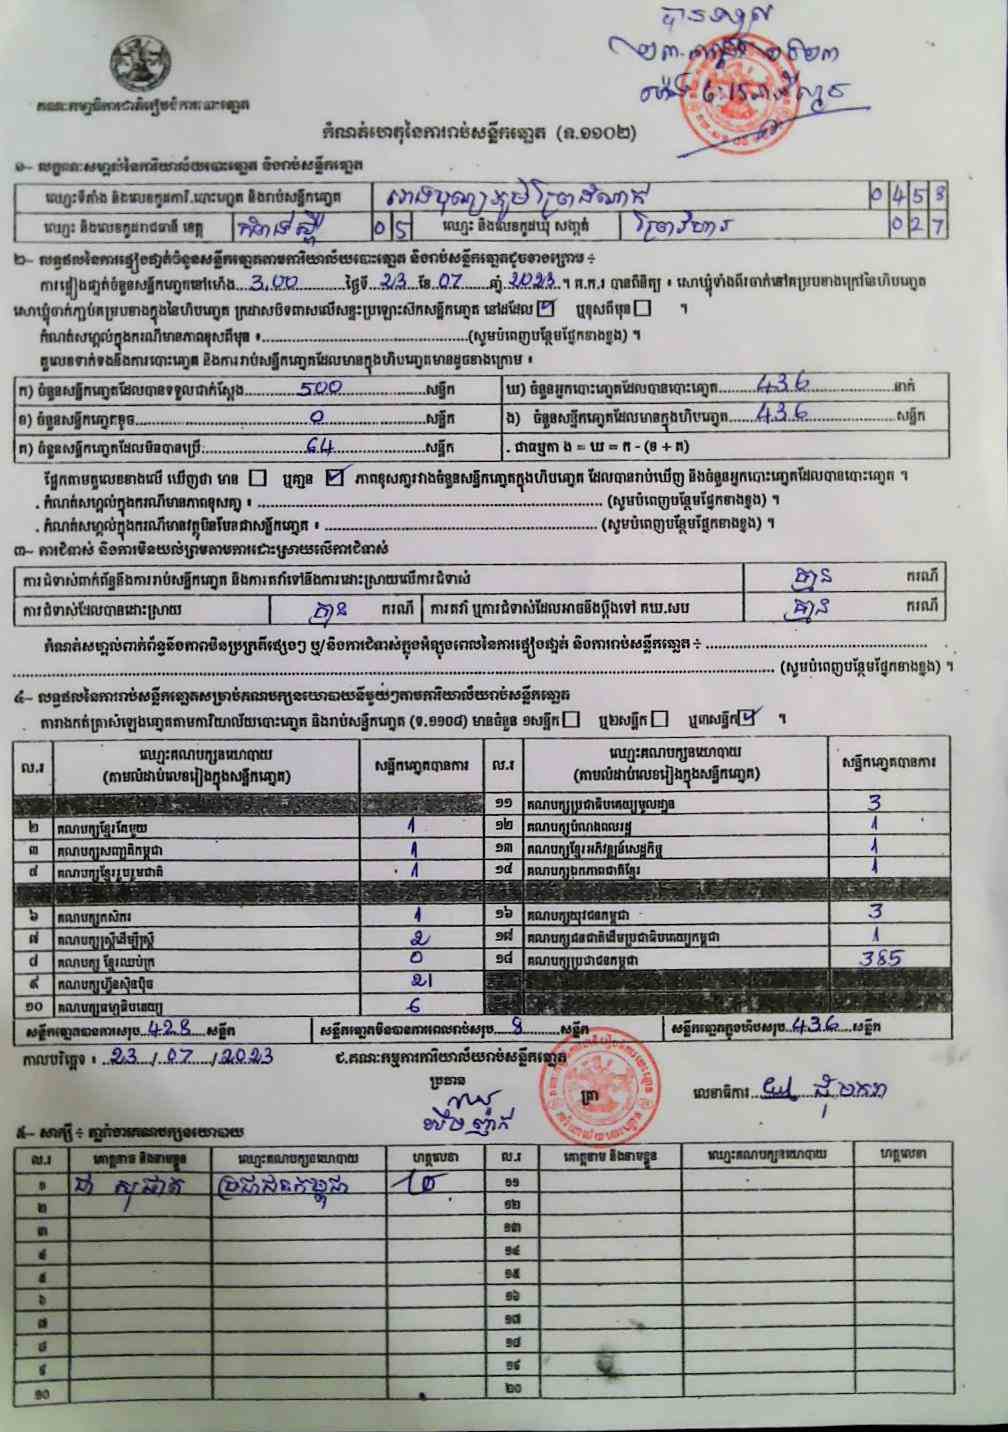 បានទទួល
គណៈកម្មាធិការជាតិរៀបចំការបោះឆ្នោត
កំណត់ហេតុនៃការរាប់សន្លឹកឆ្នោត (ទ.១១០២)
១- លក្ខណៈសម្គាល់នៃការិយាល័យបោះឆ្នោត និងរាប់សន្លឹកឆ្នោត
ឈ្មោះទីតាំង និងលេខកូដការិ.បោះឆ្នោត និងរាប់សន្លឹកឆ្នោត 0 4 5 8
ឈ្មោះ និងលេខកូដរាជធានី ខេត្ត កំពង់ស្ពឺ 0 5 ឈ្មោះ និងលេខកូដឃុំ សង្កាត់ ព្រៃវិហារ 0 2 7
២- លទ្ធផលនៃការផ្ទៀងផ្ទាត់ចំនួនសន្លឹកឆ្នោតតាមការិយាល័យបោះឆ្នោត និងរាប់សន្លឹកឆ្នោតដូចខាងក្រោម ÷
ការផ្ទៀងផ្ទាត់ចំនួនសន្លឹកឆ្នោតនៅម៉ោង 3,00 ថ្ងៃទី 23 ខែ 07 ឆ្នាំ 2023 ។ គ.ក.រ បានពិនិត្យ ៖ សោឃ្លុំទាំងពីរចាក់នៅគម្របខាងក្រៅនៃហិបឆ្នោត
សោឃ្លុំចាក់ភ្ជាប់គម្របខាងក្នុងនៃហិបឆ្នោត ក្រដាសបិទពាសលើសន្ទះប្រឡោះស៊កសន្លឹកឆ្នោត នៅដដែល ☑ ឬខុសពីមុន ☐ ។
កំណត់សម្គាល់ក្នុងករណីមានភាពខុសពីមុន ៖ (សូមបំពេញបន្ថែមផ្នែកខាងខ្នង) ។
តួលេខទាក់ទងនឹងការបោះឆ្នោត និងការរាប់សន្លឹកឆ្នោតដែលមានក្នុងហិបឆ្នោតមានដូចខាងក្រោម ៖
ក) ចំនួនសន្លឹកឆ្នោតដែលបានទទួលជាក់ស្តែង 500 សន្លឹក ឃ) ចំនួនអ្នកបោះឆ្នោតដែលបានបោះឆ្នោត 436 នាក់
ខ) ចំនួនសន្លឹកឆ្នោតខូច 0 សន្លឹក ង) ចំនួនសន្លឹកឆ្នោតដែលមានក្នុងហិបឆ្នោត 436 សន្លឹក
គ) ចំនួនសន្លឹកឆ្នោតដែលមិនបានប្រើ 64 សន្លឹក . ជាធម្មតា ង = ឃ = ក - (ខ + គ)
ផ្អែកតាមតួលេខខាងលើ ឃើញថា មាន ☐ ឬគ្មាន ☑ ភាពខុសគ្នារវាងចំនួនសន្លឹកឆ្នោតក្នុងហិបឆ្នោត ដែលបានរាប់ឃើញ និងចំនួនអ្នកបោះឆ្នោតដែលបានបោះឆ្នោត ។
. កំណត់សម្គាល់ក្នុងករណីមានភាពខុសគ្នា ៖ (សូមបំពេញបន្ថែមផ្នែកខាងខ្នង) ។
. កំណត់សម្គាល់ក្នុងករណីមានវត្ថុមិនមែនជាសន្លឹកឆ្នោត ៖ (សូមបំពេញបន្ថែមផ្នែកខាងខ្នង) ។
៣- ការជំទាស់ និងការមិនយល់ព្រមតាមការដោះស្រាយលើការជំទាស់
ការជំទាស់ពាក់ព័ន្ធនឹងការរាប់សន្លឹកឆ្នោត និងការតវ៉ាទៅនឹងការដោះស្រាយលើការជំទាស់ គ្មាន ករណី
ការជំទាស់ដែលបានដោះស្រាយ គ្មាន ករណី ការតវ៉ា ឬការជំទាស់ដែលអាចនឹងប្តឹងទៅ គឃ.សប គ្មាន ករណី
កំណត់សម្គាល់ពាក់ព័ន្ធនឹងភាពមិនប្រក្រតីផ្សេងៗ ឬ/និងការជំទាស់ក្នុងអំឡុងពេលនៃការផ្ទៀងផ្ទាត់ និងការរាប់សន្លឹកឆ្នោត ÷
(សូមបំពេញបន្ថែមផ្នែកខាងខ្នង) ។
៤- លទ្ធផលនៃការរាប់សន្លឹកឆ្នោតសម្រាប់គណបក្សនយោបាយនីមួយៗតាមការិយាល័យរាប់សន្លឹកឆ្នោត
តារាងកត់គ្រាសំឡេងឆ្នោតតាមការិយាល័យបោះឆ្នោត និងរាប់សន្លឹកឆ្នោត (ទ.១១០៨) មានចំនួន ១សន្លឹក ☐ ឬ២សន្លឹក ☐ ឬ៣សន្លឹក ☑ ។
ល.រ ឈ្មោះគណបក្សនយោបាយ (តាមលំដាប់លេខរៀងក្នុងសន្លឹកឆ្នោត) សន្លឹកឆ្នោតបានការ ល.រ ឈ្មោះគណបក្សនយោបាយ (តាមលំដាប់លេខរៀងក្នុងសន្លឹកឆ្នោត) សន្លឹកឆ្នោតបានការ
១១ គណបក្សប្រជាធិបតេយ្យមូលដ្ឋាន 3
២ គណបក្សខ្មែរតែមួយ 1 ១២ គណបក្សបំណងពលរដ្ឋ 1
៣ គណបក្សសញ្ជាតិកម្ពុជា 1 ១៣ គណបក្សខ្មែរអភិវឌ្ឍន៍សេដ្ឋកិច្ច 1
៤ គណបក្សខ្មែររួបរួមជាតិ 1 ១៤ គណបក្សឯកភាពជាតិខ្មែរ 1
៦ គណបក្សកសិករ 1 ១៦ គណបក្សយុវជនកម្ពុជា 3
៧ គណបក្សស្ត្រីដើម្បីស្ត្រី 2 ១៧ គណបក្សជនជាតិដើមប្រជាធិបតេយ្យកម្ពុជា 1
៨ គណបក្ស ខ្មែរឈប់ក្រ 0 ១៨ គណបក្សប្រជាជនកម្ពុជា 385
៩ គណបក្សហ៊្វុនស៊ិនប៉ិច 21
១០ គណបក្សធម្មាធិបតេយ្យ 6
សន្លឹកឆ្នោតបានការសរុប 428 សន្លឹក សន្លឹកឆ្នោតមិនបានការពេលរាប់សរុប 8 សន្លឹក សន្លឹកឆ្នោតក្នុងហិបសរុប 436 សន្លឹក
កាលបរិច្ឆេទ ៖ 23 / 07 / 2023 ជ.គណៈកម្មការការិយាល័យរាប់សន្លឹកឆ្នោត
ប្រធាន ត្រា លេខាធិការ
៥- សាក្សី ÷ ភ្នាក់ងារគណបក្សនយោបាយ
ល.រ គោត្តនាម និងនាមខ្លួន ឈ្មោះគណបក្សនយោបាយ ហត្ថលេខា ល.រ គោត្តនាម និងនាមខ្លួន ឈ្មោះគណបក្សនយោបាយ ហត្ថលេខា
១ ជា សុផាត ប្រជាជនកម្ពុជា ១១
២ ១២
៣ ១៣
៤ ១៤
៥ ១៥
៦ ១៦
៧ ១៧
៨ ១៨
៩ ១៩
១០ ២០